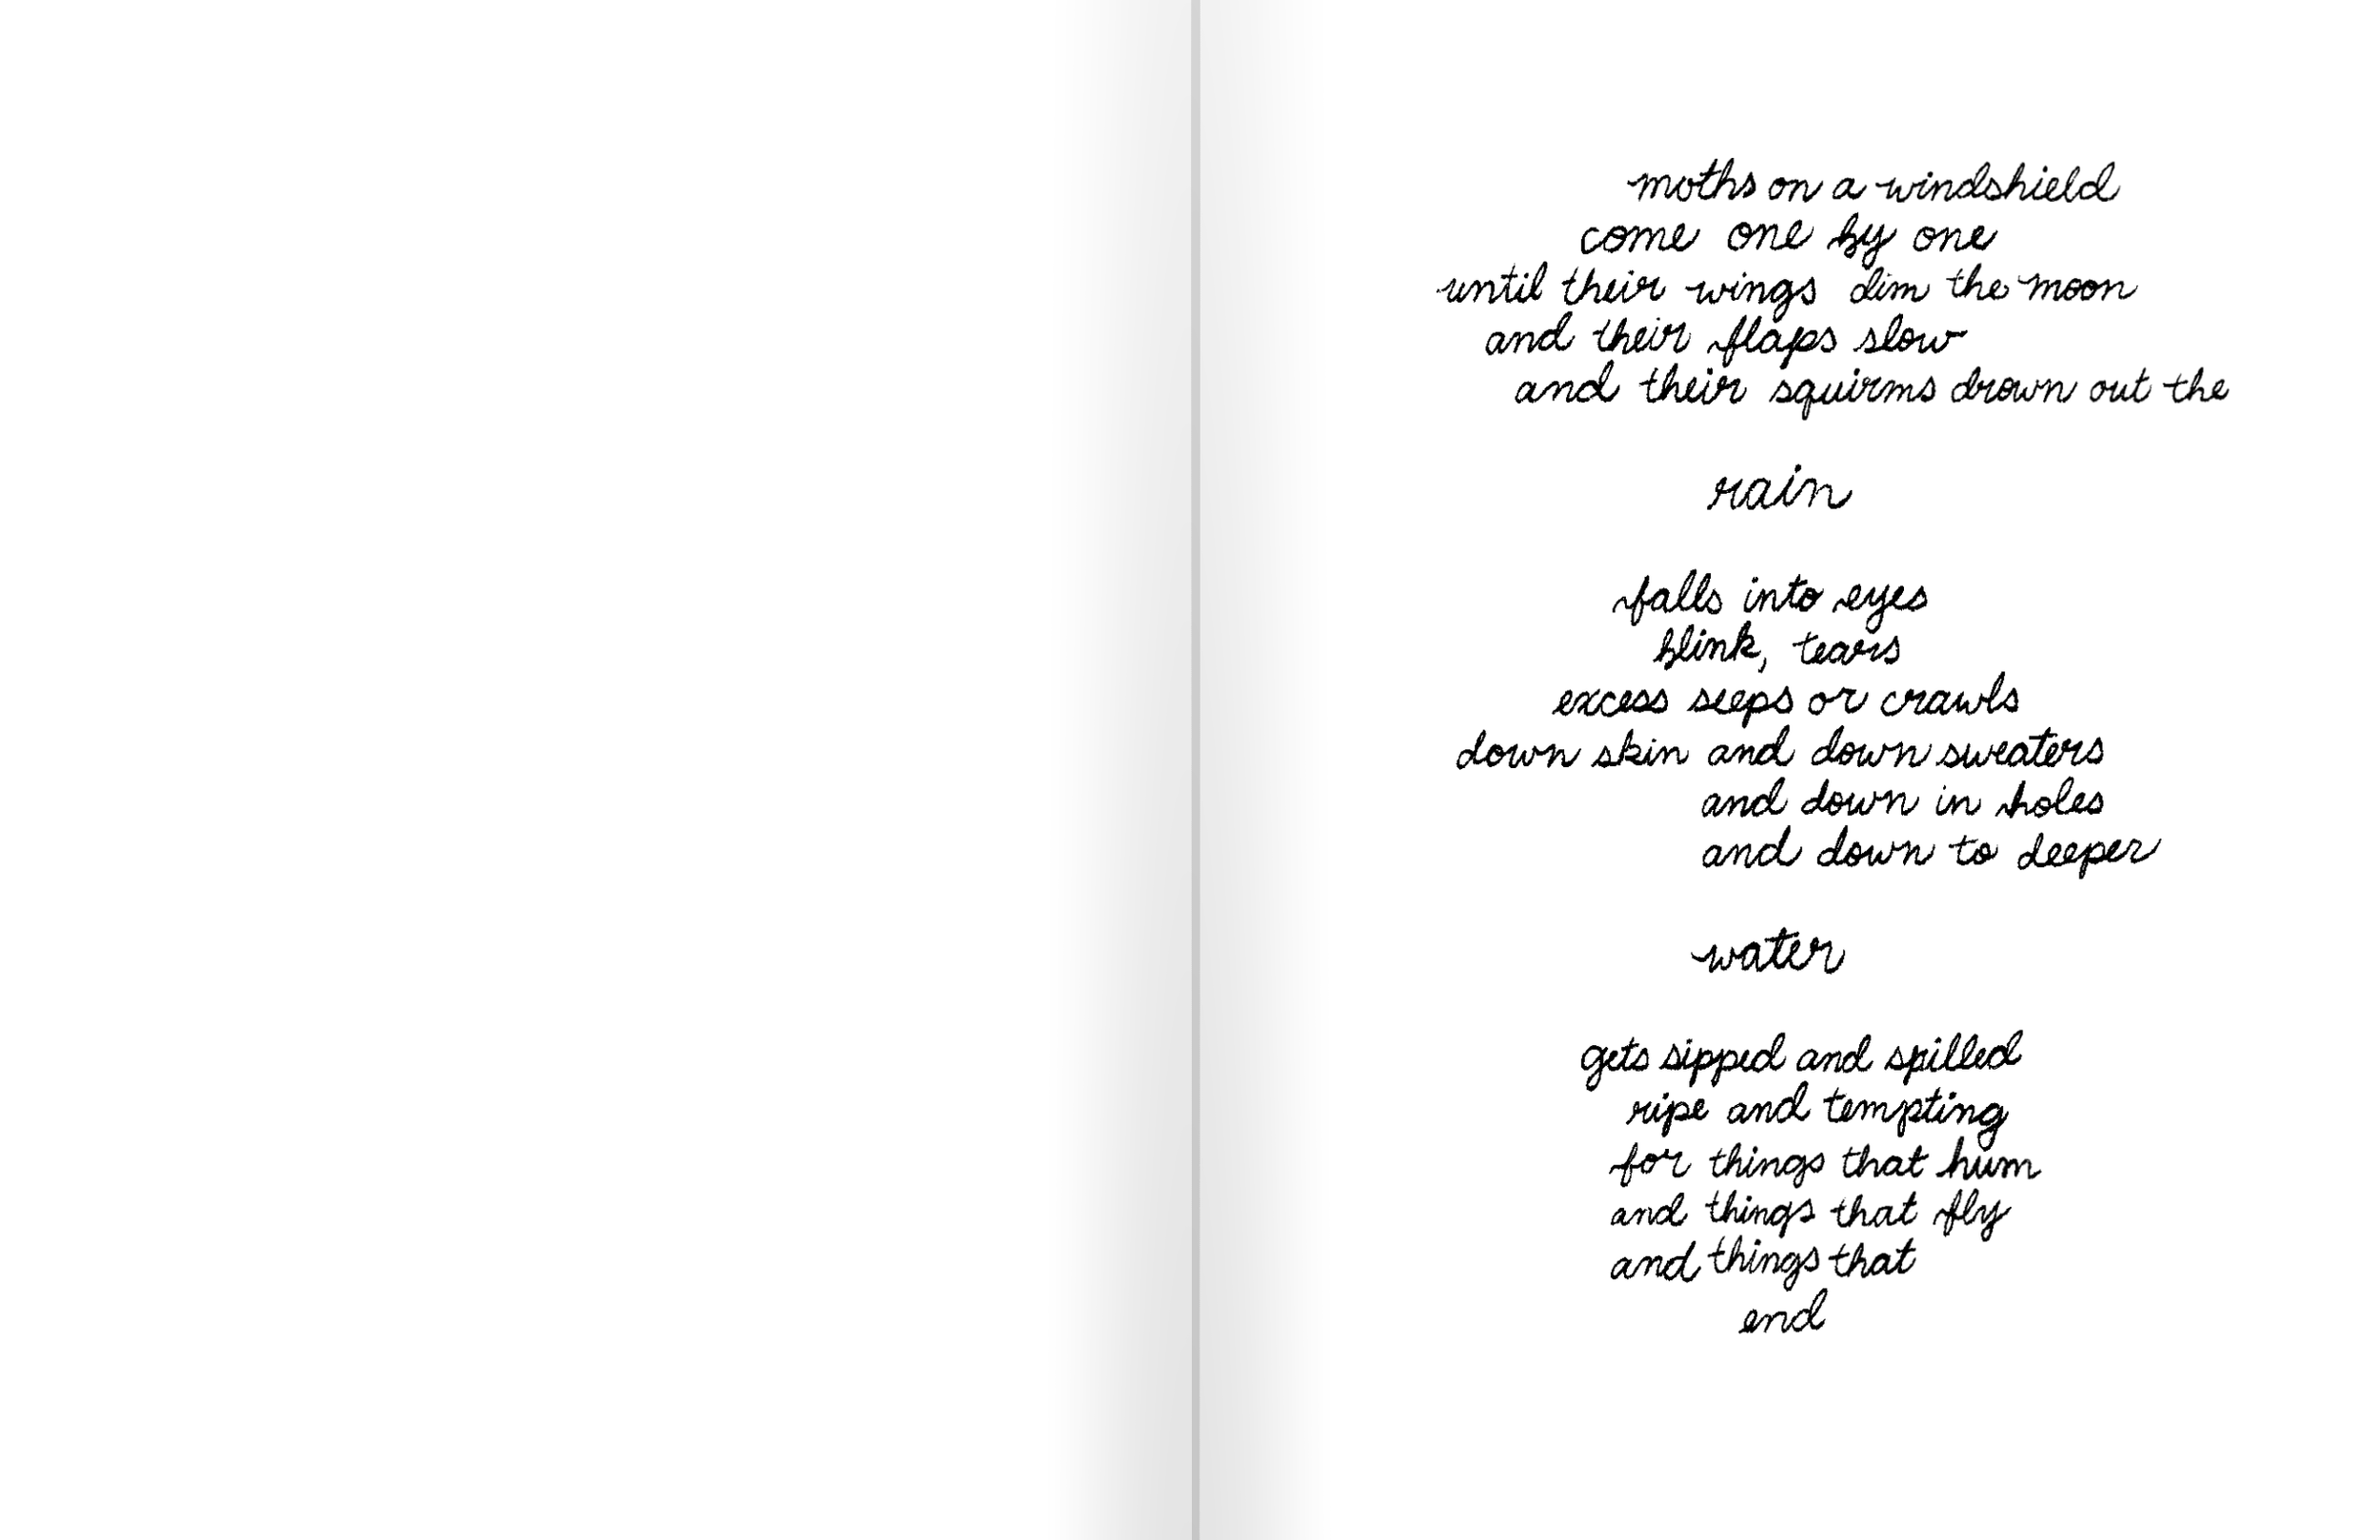 moths on a windshield
come one by one
until their wings dim the moon
and their flaps slow
and their squirms drown out the
rain
falls into eyes
blink, tears
excess seeps or crawls
down skin and down sweaters
and down in holes
and down to deeper
water
gets sipped and spilled
ripe and tempting
for things that hum
and things that fly
and things that
end